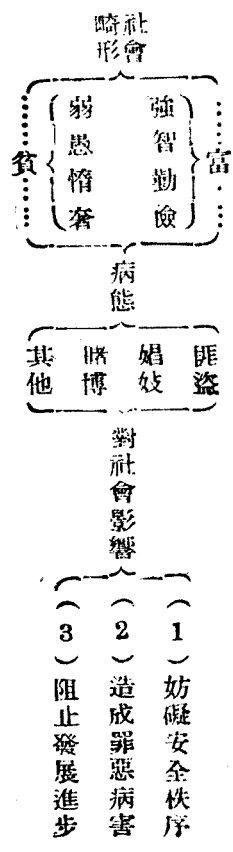 社會
畸形
富
強智勤儉
弱愚惰奢
貧
病態
匪盜
娼妓
賭博
其他
對社會影響
(1)妨礙安全秩序
(2)造成罪惡病害
(3)阻止發展進步